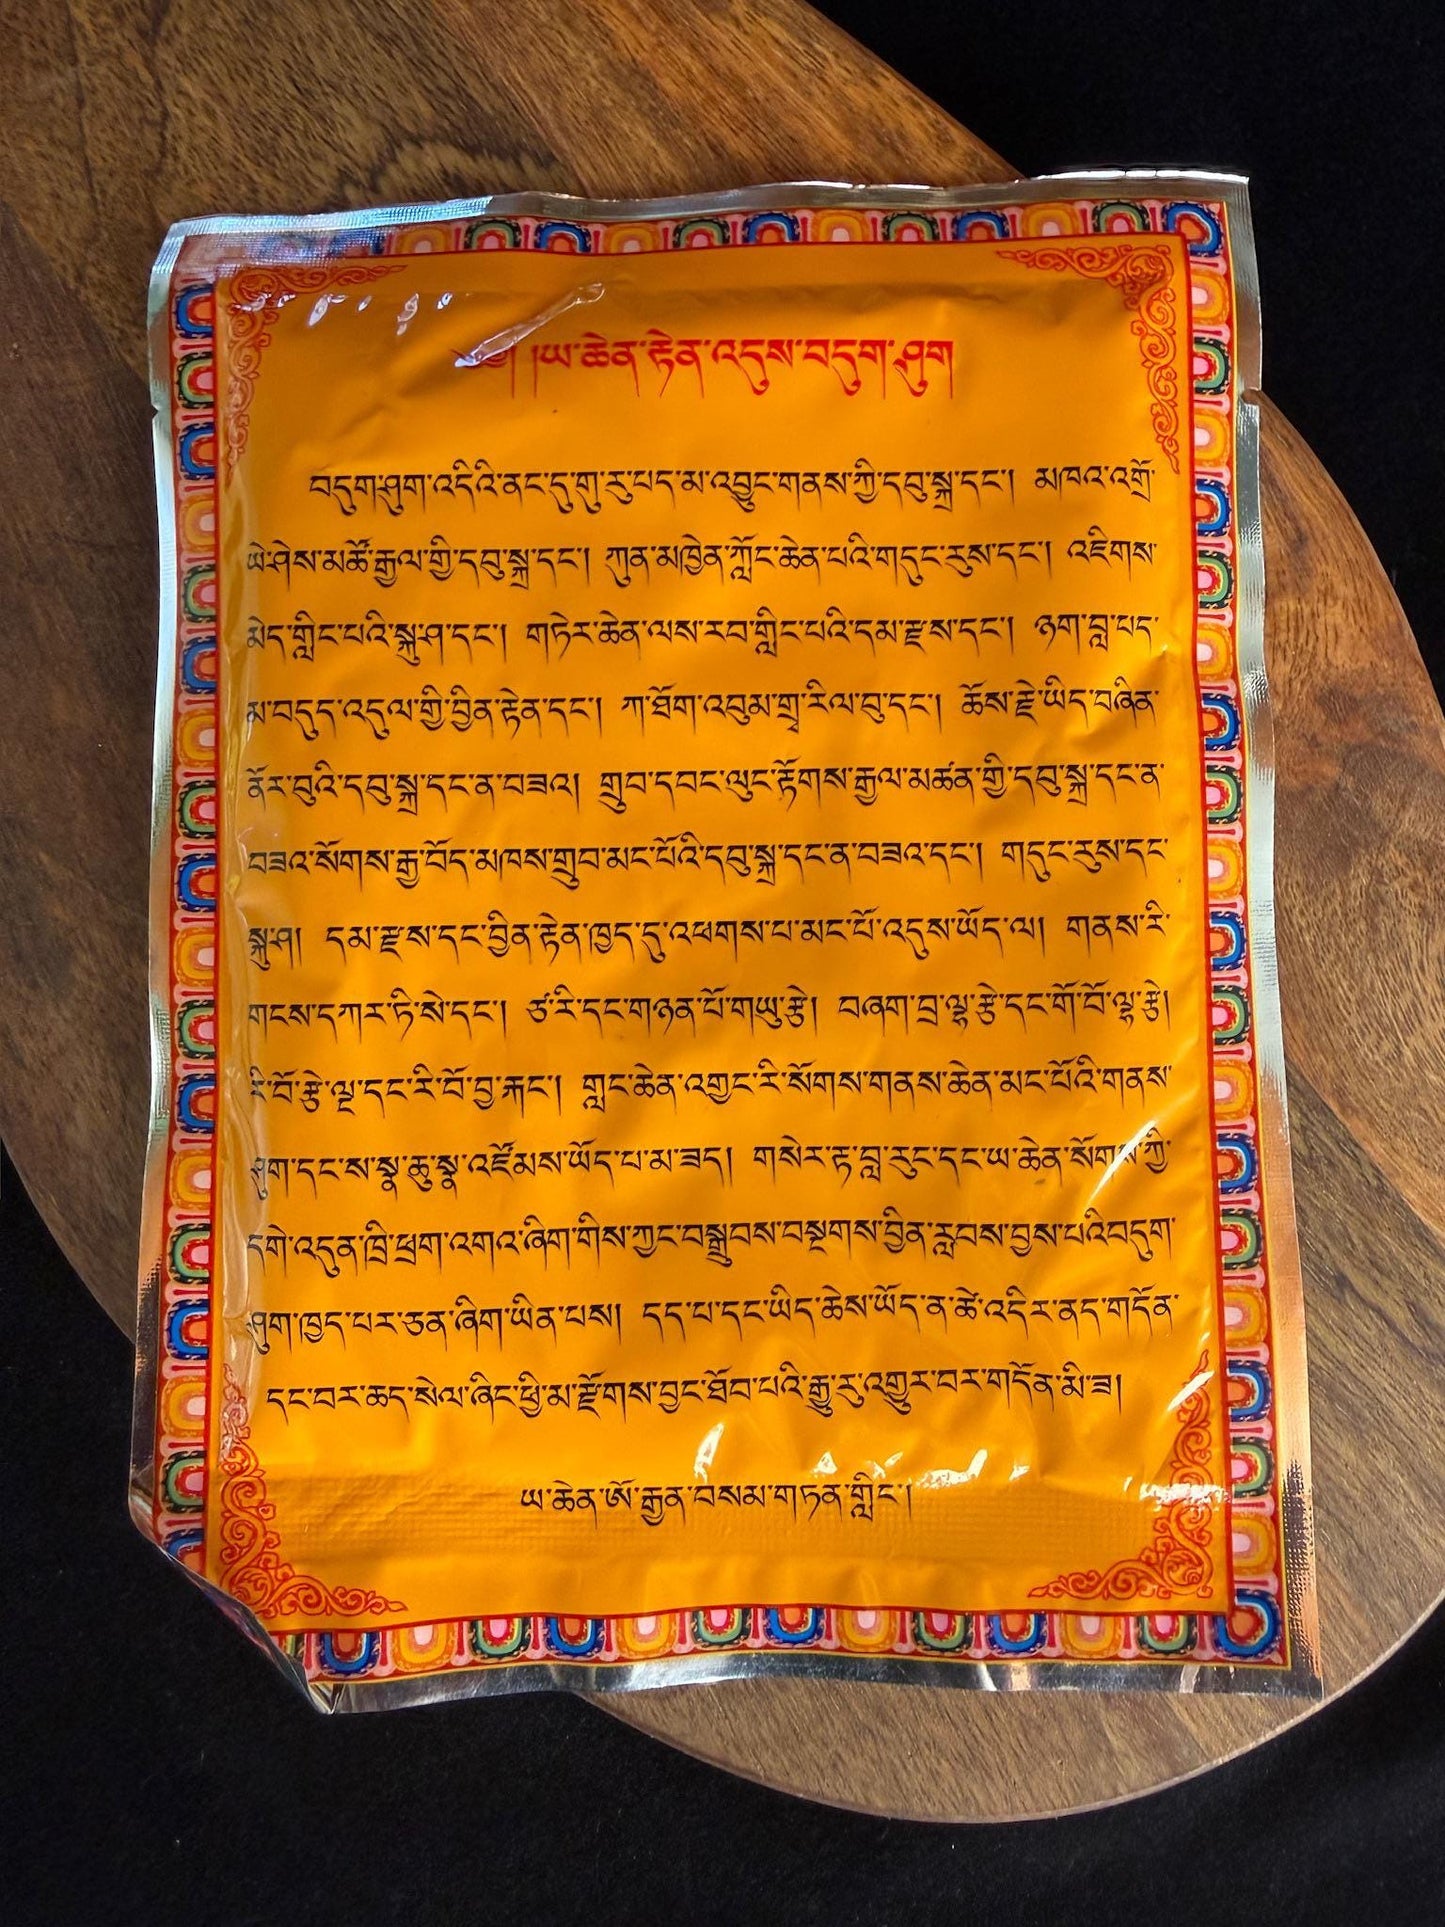 །ཡ་ཆེན་རྟེན་འདུས་བདུག་ཤུག
བདུག་ཤུག་འདིའི་ནང་དུ་གུ་རུ་པད་མ་འབྱུང་གནས་ཀྱི་དབུ་སྐྲ་དང་། མཁའ་འགྲོ་
ཡེ་ཤེས་མཚོ་རྒྱལ་གྱི་དབུ་སྐྲ་དང་། ཀུན་མཁྱེན་ཀློང་ཆེན་པའི་གདུང་རུས་དང་། འཇིགས་
མེད་གླིང་པའི་སྐུ་ཤ་དང་། གཏེར་ཆེན་ལས་རབ་གླིང་པའི་དམ་རྫས་དང་། ཉག་བླ་པད་
མ་བདུད་འདུལ་གྱི་བྱིན་རྟེན་དང་། ཀ་ཐོག་འབུམ་གྲྭ་རིལ་བུ་དང་། ཆོས་རྗེ་ཡིད་བཞིན་
ནོར་བུའི་དབུ་སྐྲ་དང་ན་བཟའ། གྲུབ་དབང་ལུང་རྟོགས་རྒྱལ་མཚན་གྱི་དབུ་སྐྲ་དང་ན་
བཟའ་སོགས་རྒྱ་བོད་མཁས་གྲུབ་མང་པོའི་དབུ་སྐྲ་དང་ན་བཟའ་དང་། གདུང་རུས་དང་
སྐུ་ཤ། དམ་རྫས་དང་བྱིན་རྟེན་ཁྱད་དུ་འཕགས་པ་མང་པོ་འདུས་ཡོད་ལ། གནས་རི་
གངས་དཀར་ཏི་སེ་དང་། ཙ་རི་དང་གཉན་པོ་གཡུ་རྩེ། བཞག་བྲ་ལྷ་རྩེ་དང་གོ་བོ་ལྷ་རྩེ།
རི་བོ་རྩེ་ལྔ་དང་རི་བོ་བྱ་རྐང་། གླང་ཆེན་འགྱང་རི་སོགས་གནས་ཆེན་མང་པོའི་གནས་
ཤུག་དང་ས་སྣ་ཆུ་སྣ་འཛོམས་ཡོད་པ་མ་ཟད། གསེར་རྟ་བླ་རུང་དང་ཡ་ཆེན་སོགས་ཀྱི་
དགེ་འདུན་ཁྲི་ཕྲག་འགའ་ཞིག་གིས་ཀྱང་བསྒྲུབས་བསྔགས་བྱིན་རླབས་བྱས་པའི་བདུག་
ཤུག་ཁྱད་པར་ཅན་ཞིག་ཡིན་པས། དད་པ་དང་ཡིད་ཆེས་ཡོད་ན་ཚེ་འདིར་ནད་གདོན་
དང་བར་ཆད་སེལ་ཞིང་ཕྱི་མ་རྫོགས་བྱང་ཐོབ་པའི་རྒྱུ་རུ་འགྱུར་བར་གདོན་མི་ཟ།
ཡ་ཆེན་ཨོ་རྒྱན་བསམ་གཏན་གླིང་།